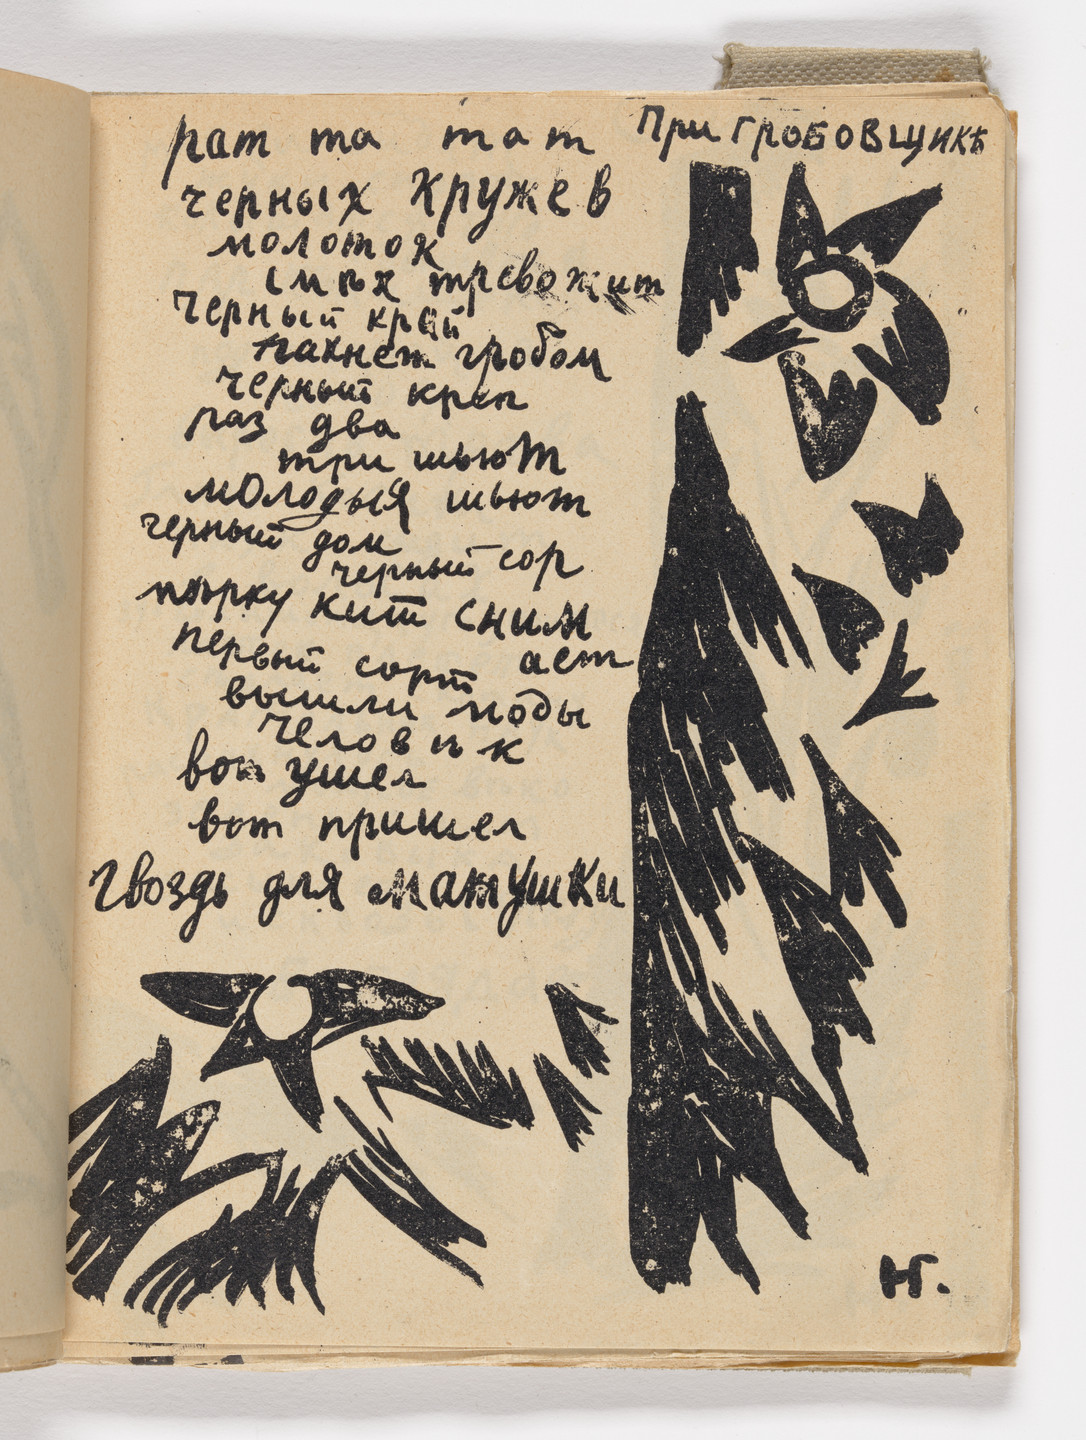 При гробовщикѣ
рат та тат
черных кружев
молоток
смѣх тревожит
черный край
пахнет гробом
черный креп
раз два
три шьют
молодыя шьют
черный дом
черный сор
пѣрку кит сним
ает
первый сорт
вышли моды
человѣк
вот ушел
вот пришел
гвоздь для матушки
НГ.